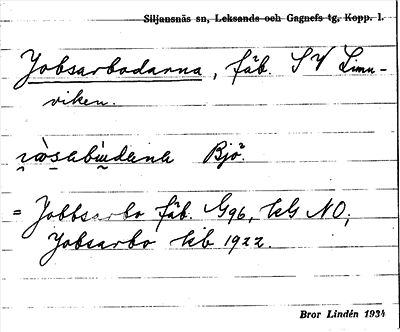 Siljansnäs sn, Leksands och Gagnefs tg, Kopp. l.
Jobsarbodarna, fäb. SV Limu-
viken.
Bjö.
= Jobbsarbo fäb. G96, kG NO;
Jobsarbo kb 1922.
Bror Lindén 1934